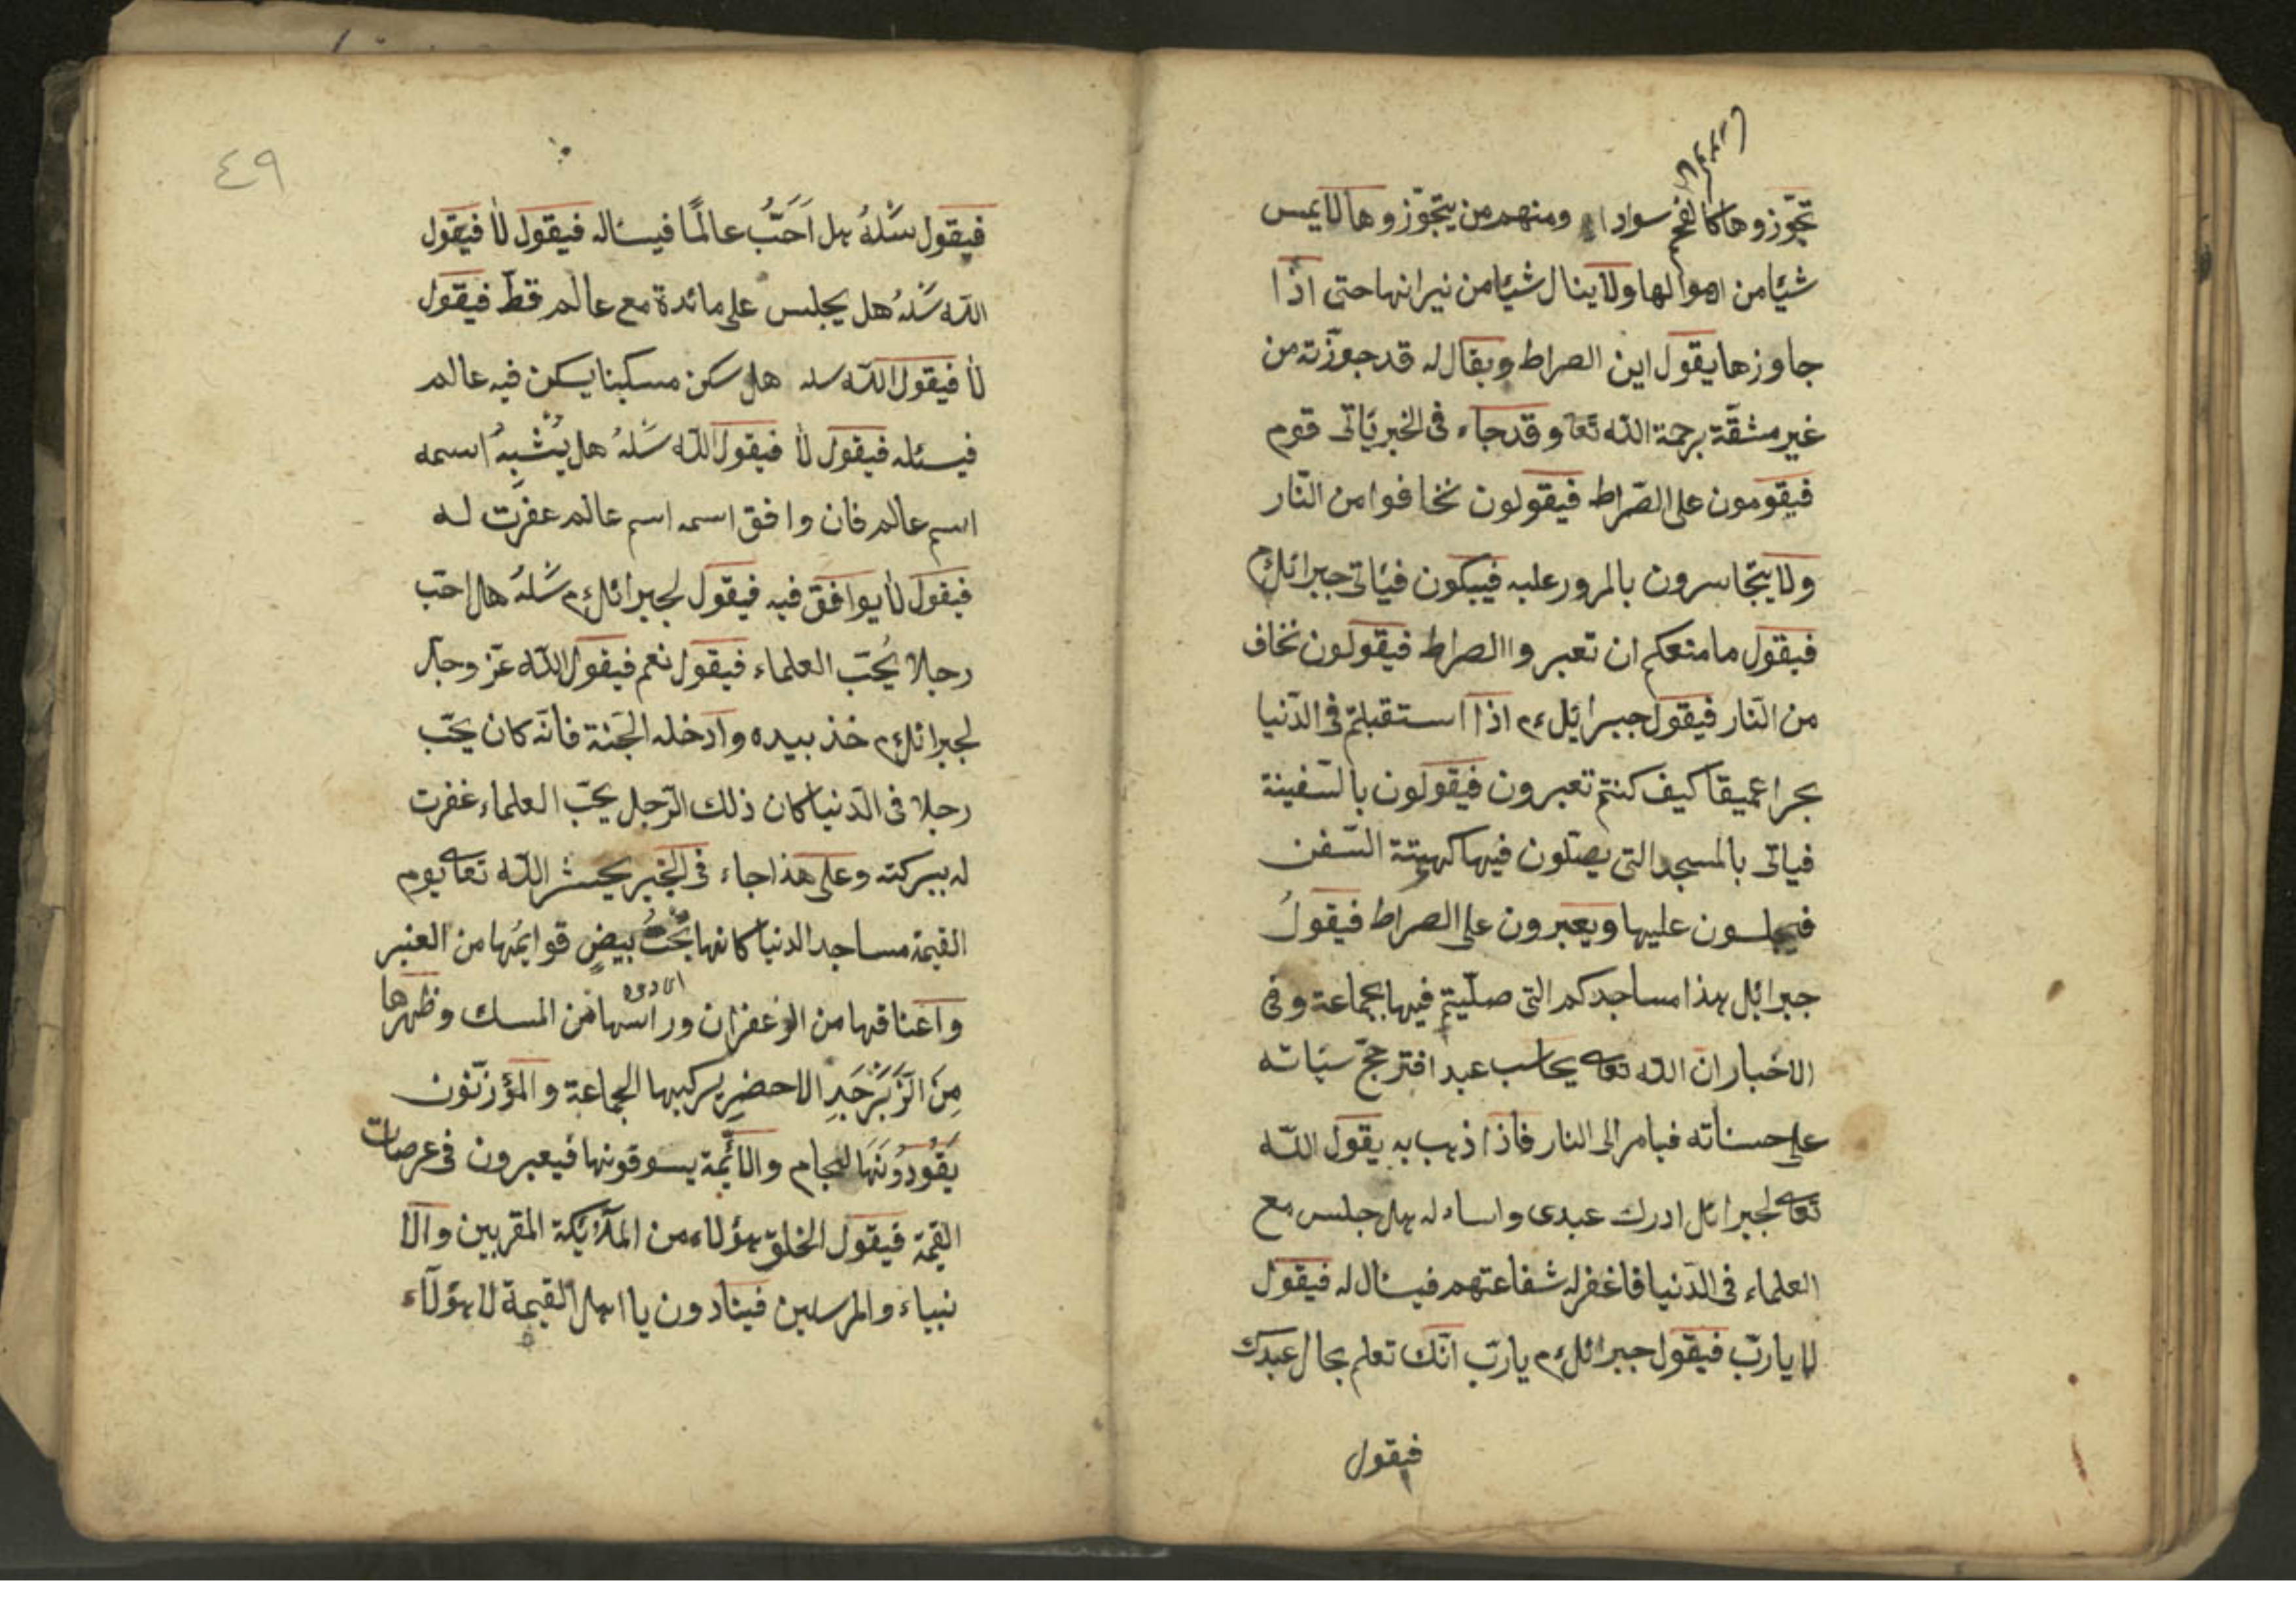 تجوّزوها كالفحم سوادا ومنهم من يتجوّزوها لا يمس
شيًا من اهوالها ولا ينال شيًا من نيرانها حتى اذا
جاوزها يقول اين الصراط ويقال له قد جوزته من
غير مشقّة برحمة اللّه تعا وقد جاء فى الخبر يَاتى قوم
فيقومون على الصّراط فيقولون نخافوا من النّار
ولا يتجاسرون بالمرور عليه فيبكون فيَاتى جبرائلءم
فيقول ما منعكم ان تعبروا الصراط فيقولون نخاف
من النّار فيقول جبرايَل ءم اذا استقبلتم فى الدّنيا
بحرا عميقا كيف كنتم تعبرون فيقولون بالسّفينة
فياتى بالمسجد التى يصلّون فيها كهيئة السّفن
فيجلسون عليها ويعبرون على الصراط فيقولُ
جبرائل هذا مساجدكم التى صلّيتم فيها بجماعة وفى
الاخبار ان اللّه تعا يحاسب عبدا فترجّح سيّاته
على حسناته فيامر الى النار فاذا ذهب به يقول اللّه
تعا لجبرائل ادرك عبدى واساءله هل جلس مع
العلماء فى الدّنيا فاغفرله شفاعتهم فيساله فيقول
لا يا ربّ فيقول جبرائلءم يا ربّ انّك تعلم بحال عبدك
فيقول
٤٩
فيقول سَْلهُ هل اَحَبَّ عالمًا فيساله فيقول لا فيقول
اللّه سَْلهُ هل يجلس على مائدة مع عالم قطّ فيقول
لا فيقول اللّه سله هل سكن مسكينا يسكن فيه عالم
فيسئله فيقول لا فيقول اللّه سَْلهُ هل يُشْبِهُ اسمه
اسم عالم فان وافق اسمه اسم عالم غفرت له
فيقول لا يوافق فيه فيقول لجبرائلءم سَْلهُ هل احبّ
رجلا يُحّب العلماء فيقول نعم فيقول اللّه عزّ وجلّ
لجبرائلءم خذ بيده وادخله الجنّة فانّه كان يحّب
رجلا فى الدّنيا كان ذلك الرّجل يحّب العلماء غفرت
له ببركته وعلى هذا جاء فى الخبر يحشر اللّه تعا يوم
القيمة مساجد الدنيا كانها بُخْتُ بيضٍ قوايُمها من العنبر
واعناقها من الزعفران وراسها من المسك وظهرها
مِنَ الزَّبَرْجَدِ الاحضرِ يركبها الجماعة والمؤزّنون
يَقُودُونَهَا للجام والائّمة يسوقونها فيعبرون فى عرصات
القيمة فيقول الخلق هؤلاء من الملاَئِكة المقربين والا
نبياء والمرسلين فينادون يا اهل القيمة لا هؤلآء